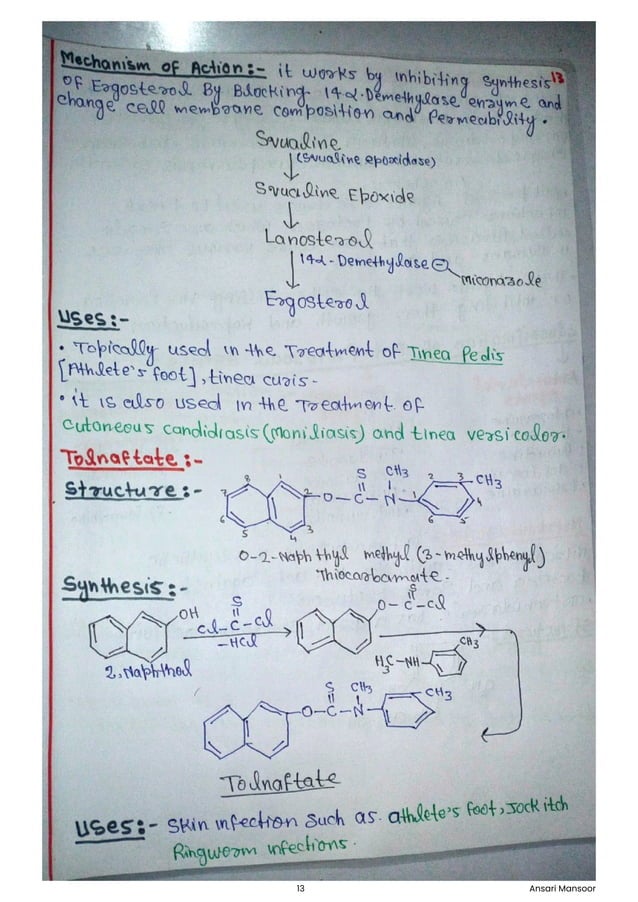 Mechanism of Action:- it works by inhibiting synthesis 13
of Ergosterol By Blocking 14α-Demethylase enzyme and
change cell membrane composition and Permeability.
Squaline
(Squaline epoxidase)
Squaline Epoxide
Lanosterol
14α-Demethylase ⊖
miconazole
Ergosterol
Uses:-
• Topically used in the Treatment of Tinea Pedis
[Athlete's foot], tinea curis-
• it is also used in the Treatment of
Cutaneous candidiasis (moniliasis) and tinea versicolor.
Tolnaftate:-
Structure:-
8 1 2 3 4 5 6 7 -O-C-N- S CH3 1 2 3 4 5 6 -CH3
O-2-Naphthyl methyl (3-methylphenyl)
Thiocarbamate-
Synthesis:-
OH
S
Cl-C-Cl
-HCl
S
O-C-Cl
2,Naphthol
H3C-NH-
CH3
S CH3
-O-C-N-
-CH3
Tolnaftate
Uses:- Skin infection such as athlete's foot, Jock itch
Ringworm infections.
13
Ansari Mansoor